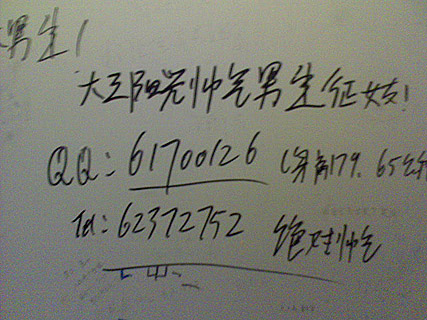 男生！
大三阳光帅气男生征女友！
QQ：61700126（身高179，65公斤
Tel：62372752 绝对帅气